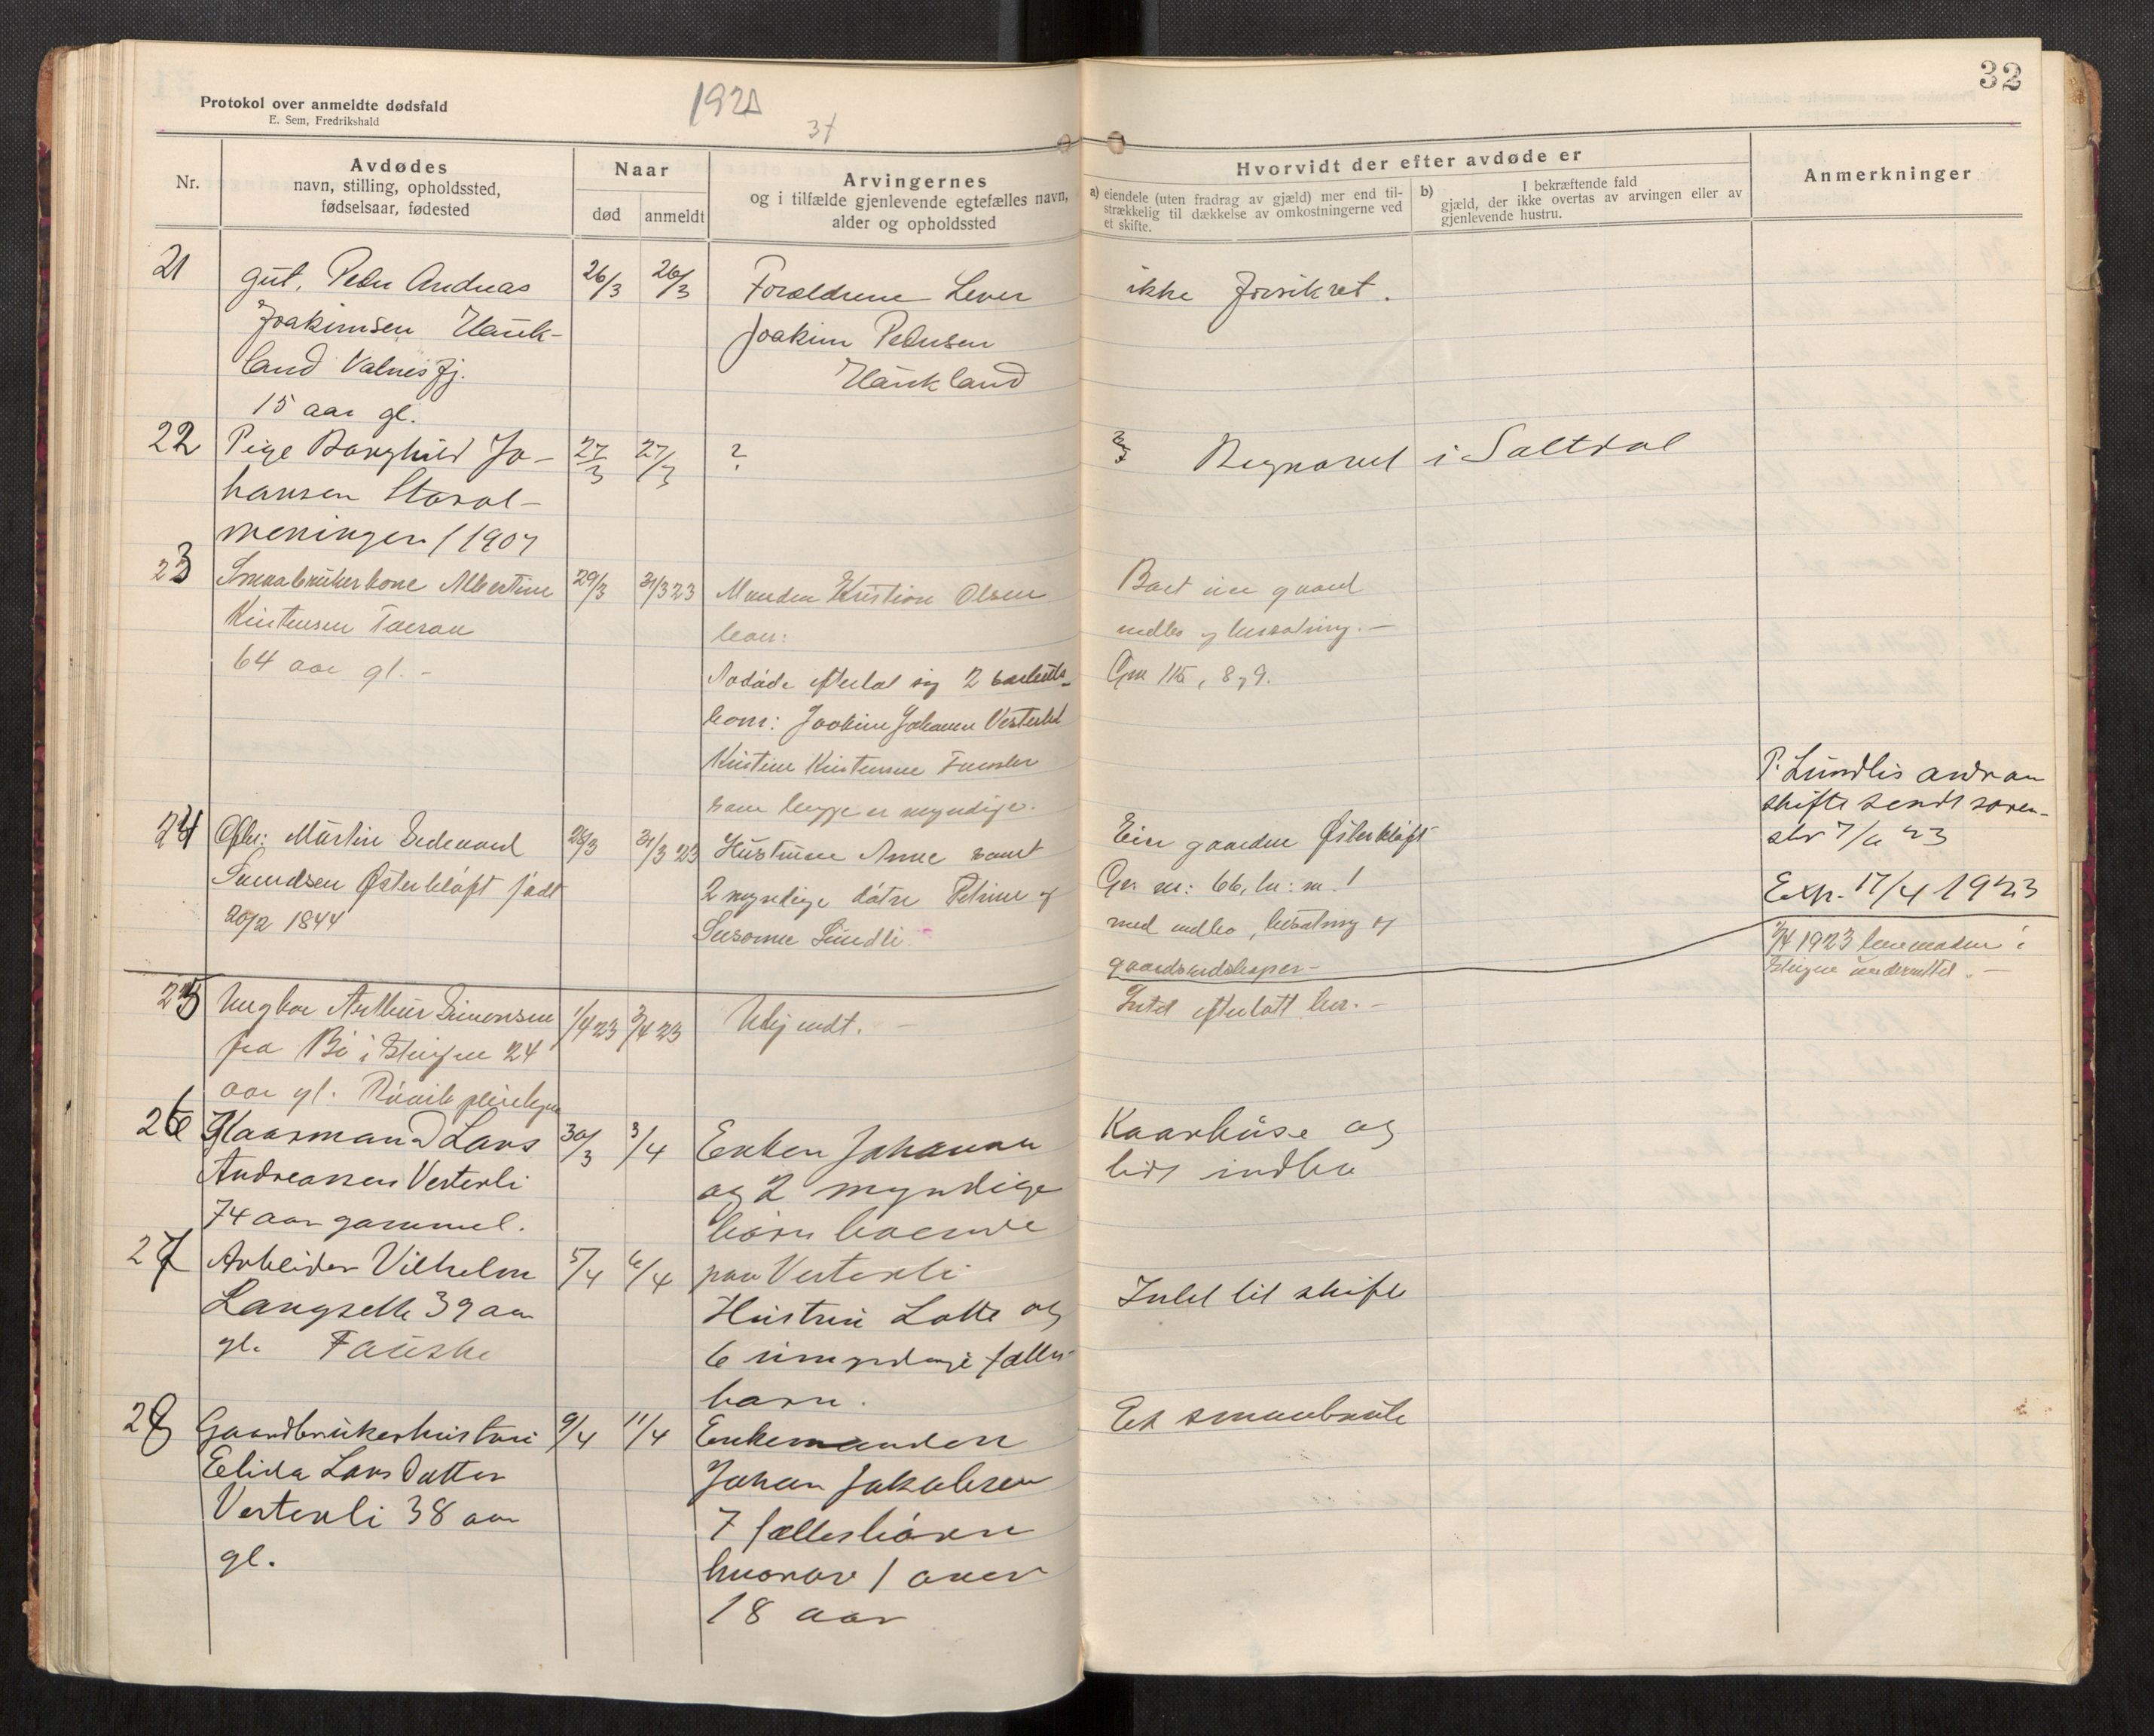 32
Protokol over anmeldte dødsfald
E. Sem, Fredrikshald
Nr.
Avdødes
navn, stilling, opholdssted,
fødselsaar, fødested
Naar
død
anmeldt
Arvingernes
og i tilfælde gjenlevende egtefælles navn,
alder og opholdssted
Hvorvidt der efter avdøde er
a) eiendele (uten fradrag av gjæld) mer end til-
strækkelig til dækkelse av omkostningerne ved
et skifte.
b) I bekræftende fald
gjæld, der ikke overtas av arvingen eller av
gjenlevende hustru.
Anmerkninger
21
gut. Peder Andreas
Joakimsen Hauk-
land Valnesfj.
15 aar gl.
26/3
26/3
Forældrene Lever
Joakim Pedersen
Haukland
ikke forsikret.
22
Pige Borghild Jo-
hansen Storal-
meningen / 1907
27/3
27/3
?
i Saltdal
23
Smaabrukerkone Albertine
Kristensen
64 aar gl. -
29/3
31/3 23
Manden Kristian Olsen
Avdøde efterlot sig 2
Kristine Kristensen
som begge er myndige.
indbo og besætning. -
Gn 115, 8, 9.
24
Martin Edevard
Østerkløft født
20/2 1844
28/3
31/3 23
Hustruen Anne samt
2 myndige døtre Petrine og
Susanne Lundli
Eier gaarden Østerkløft
med indbo, besætning og
gaardsredskaper -
P. Lundlis andr om
skifte sendt soren-
skr
Exp. 17/4 1923
25
Ungkar Arthur Simonsen
fra Bø i Steigen 24
aar gl.
1/4 23
3/4 23
Ukjendt. -
Intet efterlatt her. -
3/4 1923 lensmanden i
Steigen underrettet. -
26
Kaarmand Lars
Andreassen Vesterli
74 aar gammel.
30/3
3/4
Enken Johanna
og 2 myndige
børn boende
paa Vesterli
Kaarhuse og
lidt indbo
27
Arbeider Vilhelm
Langsette 39 aar
gl. Fauske
5/4
6/4
Hustru Lotte og
6 umyndige fælles-
barn.
Intet til skifte
28
Gaardbrukerhustru
Elida Lars Datter
Vesterli 38 aar
gl.
9/4
11/4
Enkemanden
Johan Jakobsen
7 fællesbørn
hvorav 1 over
18 aar
Et smaabruk